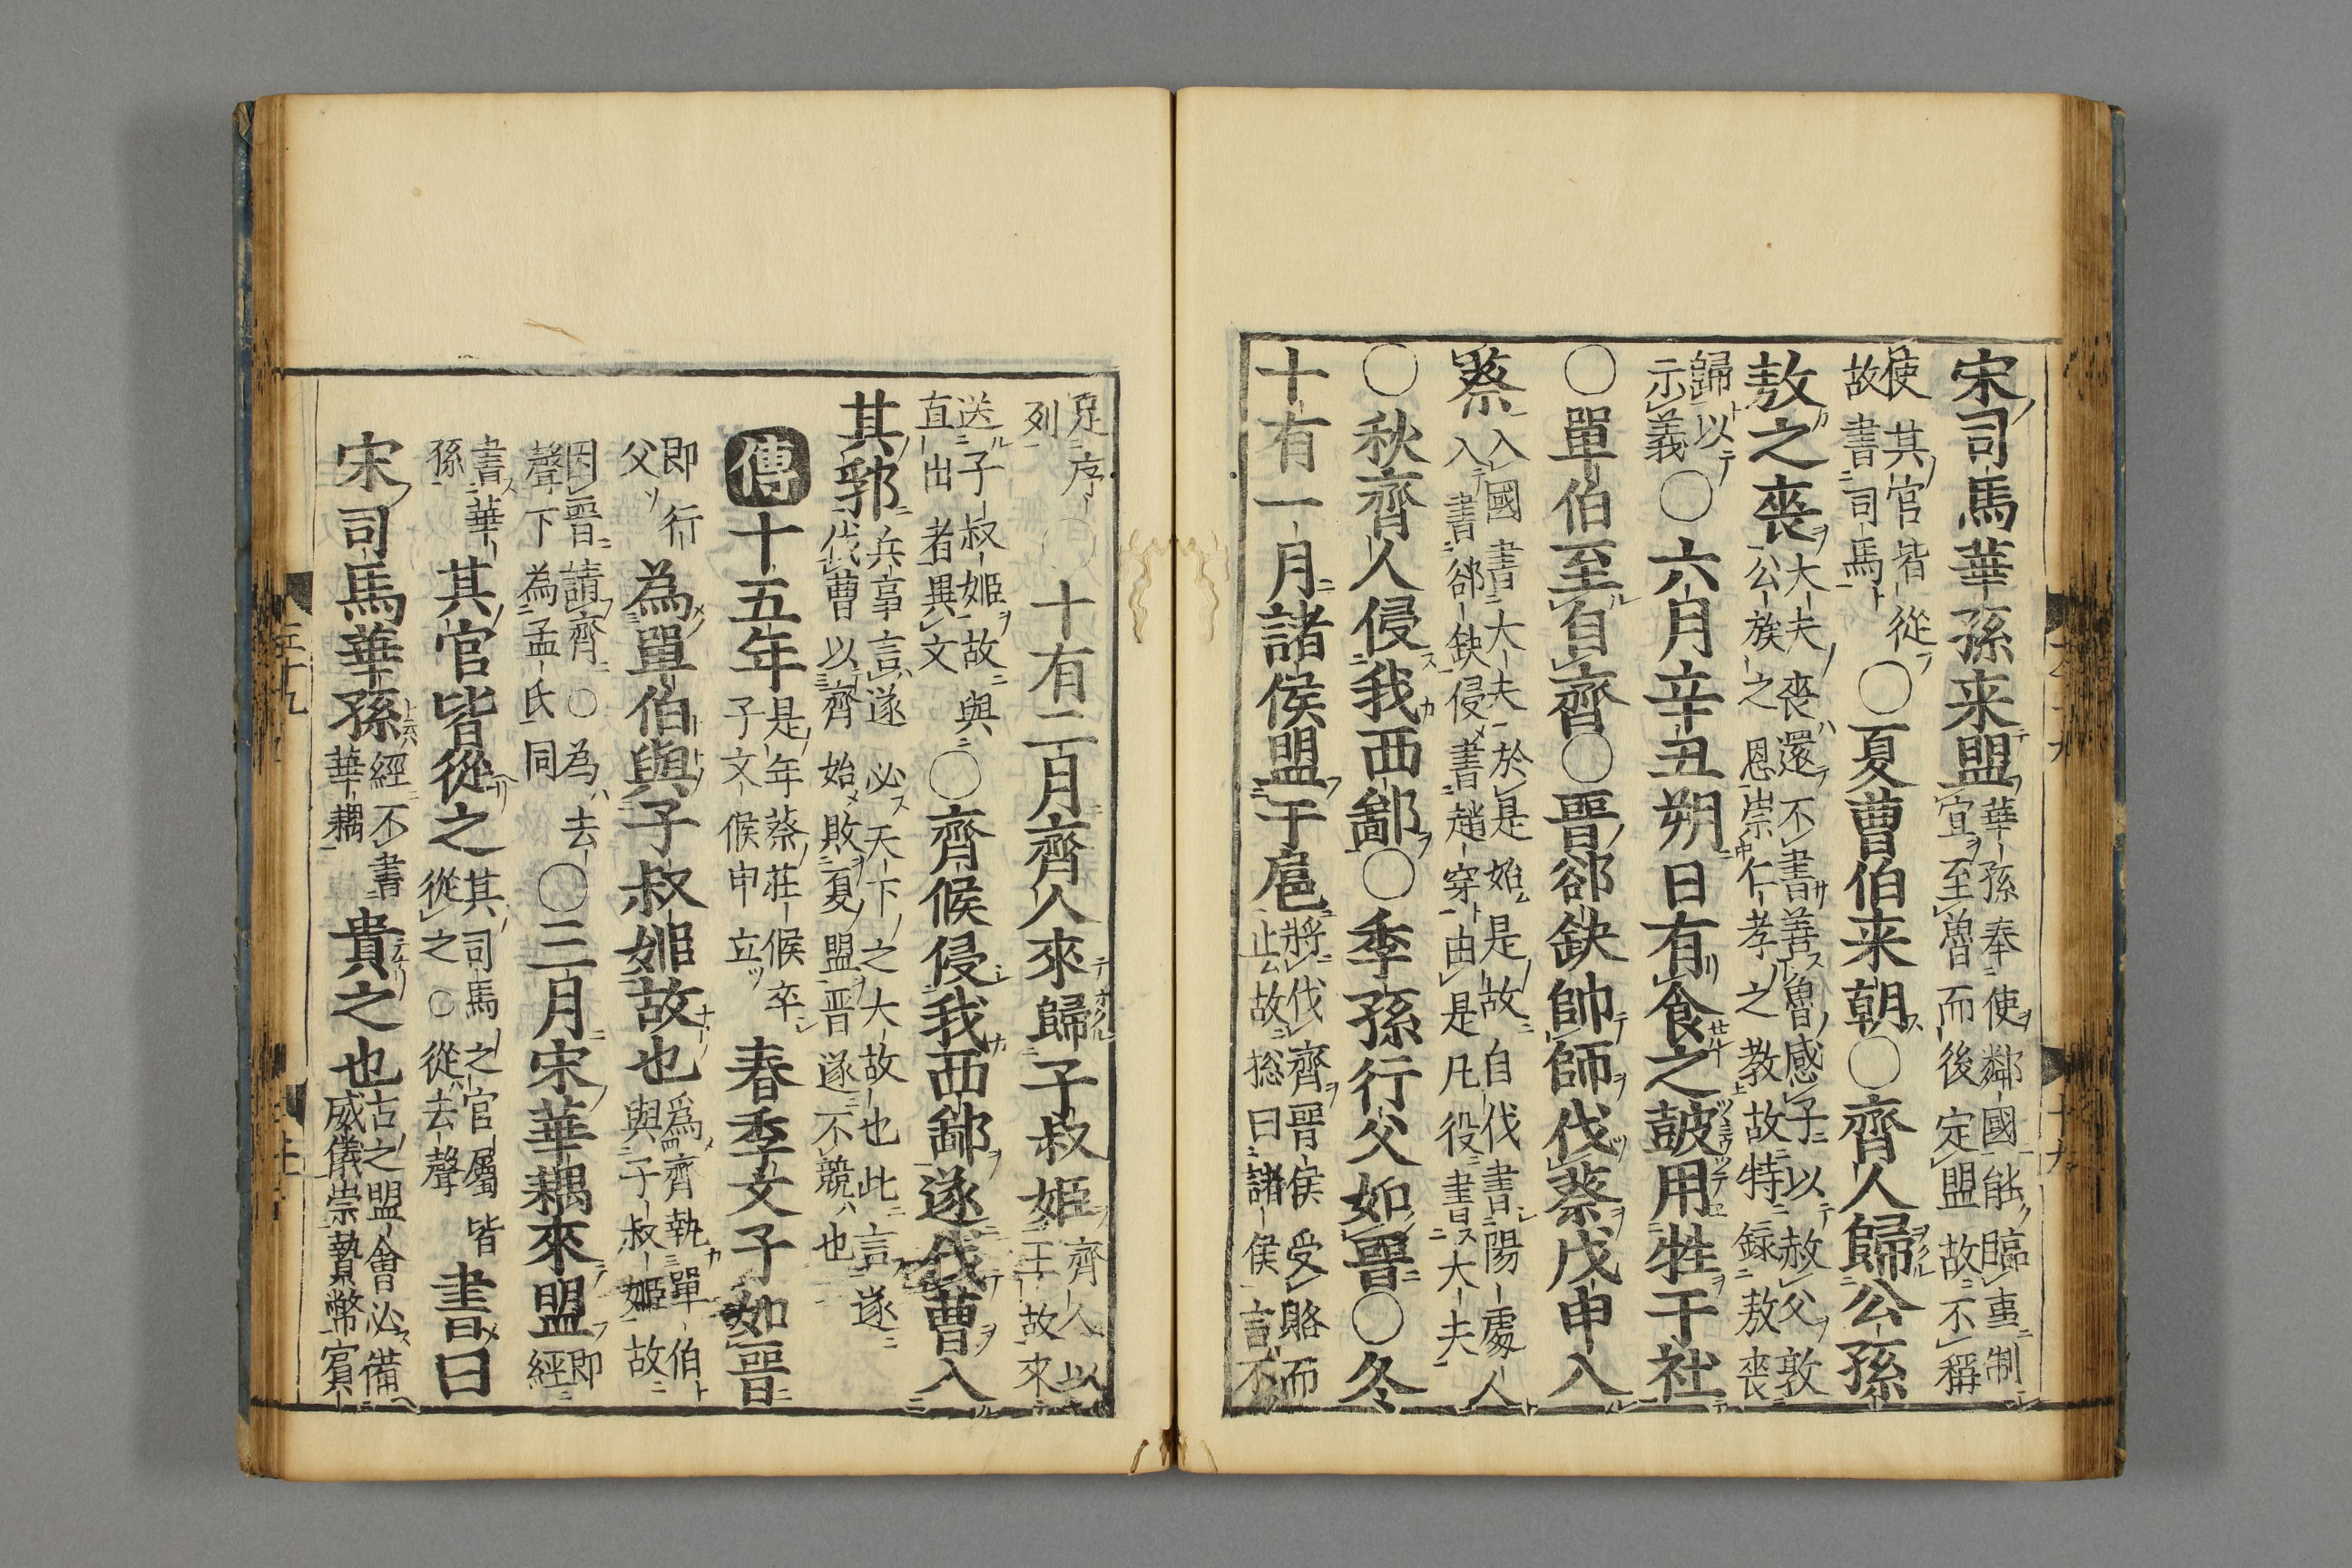 宋司馬華孫来盟華孫奉使鄰國能臨事制
宜至魯而後定盟故不稱
使其官皆從
故書司馬○夏曹伯来朝○齊人歸公孫
敖之喪大夫喪還不書善魯感子以赦父敦
公族之恩崇仁孝之教故特録敖喪
歸以
示義○六月辛丑朔日有食之鼓用牲于社
○單伯至自齊○晉郤缺帥師伐蔡戊申入
蔡入國書大夫於是始是故自伐書陽處人
入書郤缺侵書趙穿由是凡役書大夫
○秋齊人侵我西鄙○季孫行父如晉○冬
十有一月諸侯盟于扈將伐齊晉侯受賂而
止故総曰諸侯言不
足序
列○十有二月齊人來歸子叔姬齊人以
王故來
送子叔姬故與
直出者異文○齊侯侵我西鄙遂伐曹入
其郛兵事言遂必天下之大故也此言遂
伐曹以齊始敗夏盟晋遂不競也
傳十五年是年蔡莊侯卒
子文侯申立春季文子如晉
即行
父為單伯與子叔姬故也為齊執單伯
與子叔姬故
因晋請齊○為去
聲下為孟氏同○三月宋華耦來盟即
經
書華
孫其官皆從之其司馬之官屬皆
從之○從去聲書曰
宋司馬華孫經不書
華耦貴之也古之盟會必備
威儀崇贄幣賓